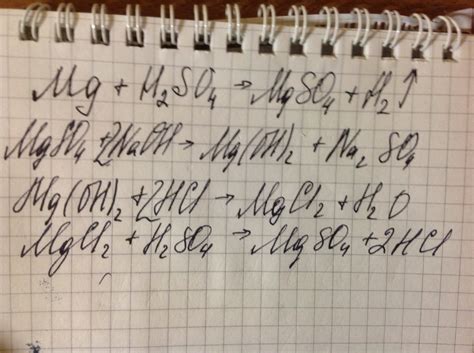 Mg + H₂SO₄ → MgSO₄ + H₂↑
MgSO₄ + 2NaOH → Mg(OH)₂ + Na₂SO₄
Mg(OH)₂ + 2HCl → MgCl₂ + H₂O
MgCl₂ + H₂SO₄ → MgSO₄ + 2HCl